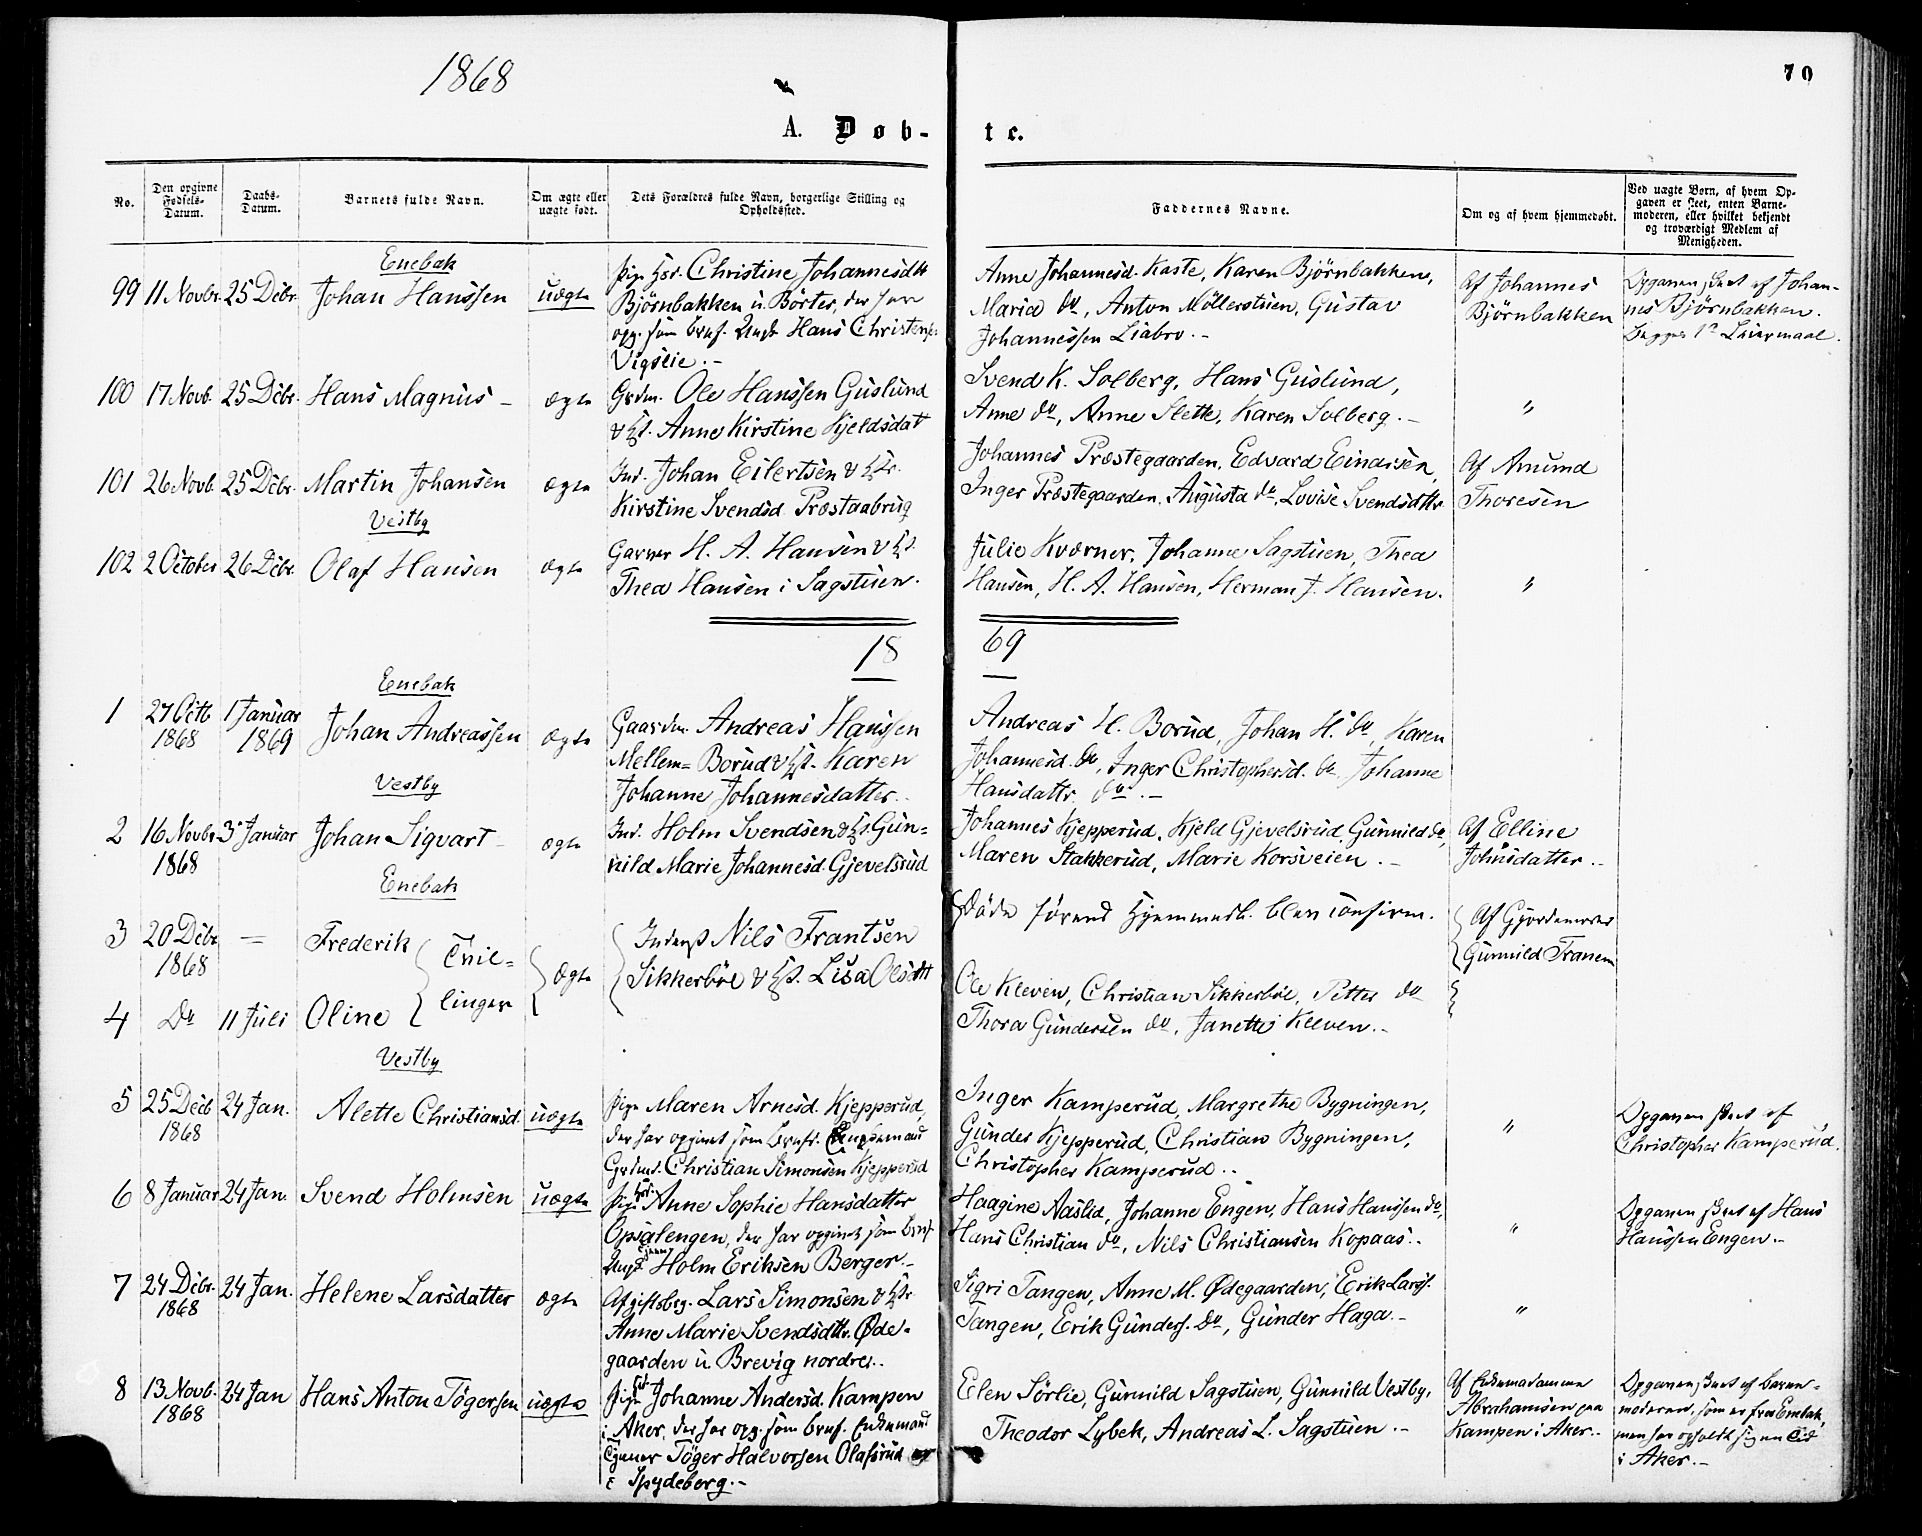 1868
70
A. Døb-
te.
No.
Den opgivne Fødsels-Datum.
Daabs-Datum.
Barnets fulde Navn.
Om ægte eller uægte født.
Dets Forældres fulde Navn, borgerlige Stilling og Opholdssted.
Faddernes Navne.
Om og af hvem hjemmedøbt.
Ved uægte Børn, af hvem Opgaven er skeet, enten Barnemoderen, eller hvilket bekjendt og troværdigt Medlem af Menigheden.
Enebak
99 11 Novbr. 25 Debr. Johan Hanssen uægte
Pige Christine Johannesdtt
Bjørnbakken u. Börter, der har
opg. som brnf. Ungk. Hans Christens.
Vigslie.-
Anne Johannesd. Kaste, Karen Björnbakken,
Maria do, Anton Möllerstuen, Gustav
Johannessen Liabro.-
Af Johannes
Björnbakken
Opgaven skeet af Johan-
nes Bjørnbakken.
Begges 1ste Leiermaal.
100 17 Novb. 25 Debr. Hans Magnus - ægte
Grdm. Ole Hanssen Guslund
& Hst. Anne Kirstine Kjeldsdat
Svend K. Solberg, Hans Guslund,
Anne do, Anne Slette, Karen Solberg.-
"
101 26 Novb. 25 Debr. Martin Johansen ægte
Ind. Johan Eilertsen & Hstr.
Kirstine Svendsd. Præstaabrug
Johannes Præstegaarden, Edvard Eindrisen,
Inger Præstegaarden, Augusta do, Lovise Svendsdttr.
Af Amund
Thoresen
Vestby
102 2 October 26 Debr. Olaf Hansen ægte
Garver H. A. Hansen & Hst.
Thea Hansen i Sagstuen.
Julie Kværner, Johanne Sagstuen, Thea
Hansen, H. A. Hansen, Herman J. Hansen.
"
18 69
Enebak
1 27 Octb 1868 1 Januar 1869 Johan Andreassen ægte
Gaardm. Andreas Hanssen
Mellem= Borud & Hst. Karen
Johanne Johannesdatter.
Andreas H. Borud, Johan H. do, Karen
Johannesd. do, Inger Christophersd. do, Johanne
Hansdattr do.-
Vestby
2 16 Novbr 1868 3 Januar Johan Sigvart - ægte
Ind. Holm Svendsen & Hst. Gun=
nild Marie Johannesd. Gjevelsrud
Johannes Kjepperud, Kjeld Gjevelsrud, Gunnild do,
Maren Stakkerud, Marie Korsveien.-
Af Elline
Johnsdatter.-
Enebak
3 20 Debr 1868 = Frederik
Tvil=
linger
ægte
Inderst Nils Frantsen
Sikkerböl & Hst. Lisa Olsdtt
Döde förend Hjemmed. blev confirm.
Af Gjordemoder
Gunnild Tranem
4 Do 11 Juli Oline
Ole Kleven, Christian Sikkerböl, Petter do
Thora Gundersen do, Janette Kleven.-
Vestby
5 25 Decb 1868 24 Jan. Alette Christiansd. uægte
Pige Maren Arnesd. Kjepperud,
der har opgivet som brnf. Enkemand
Grdmd. Christian Simonsen Kjepperud
Inger Kamperud, Margrethe Bygningen,
Gunder Kjepperud, Christian Bygningen,
Christopher Kamperud.-
"
Opgaven skeet af
Christopher Kamperud.
6 8 Januar 24 Jan. Svend Holmsen uægte
Pige Anne Sophie Hansdatter
Opsalengen, der har opgivet som brnf
Ungk. Holm Eriksen Berger.-
Haagine Aaslid, Johanne Engen, Hans Hanssen do,
Hans Christian do, Nils Christiansen Kopaas.-
"
Opgaven skeet af Hans
Hanssen Engen.-
7 24 Debr. 1868 24 Jan. Helene Larsdatter ægte
Afgiftsbrg. Lars Simonsen & Hstr
Anne Marie Svendsdttr. Øde-
gaarden u. Brevig nordre.-
Sigri Tangen, Anne M. Ødegaarden, Erik Larss.
Tangen, Erik Gunders. do, Gunder Haga.-
"
8 13 Novb. 1868 24 Jan Hans Anton Tögersen uægte
Pige Johanne Andersd. Kampen
i Aker, der har opg. som brnf. Enkemand
Töger Halvorsen Olafsrud
i Spydeberg.-
Elen Sörlie, Gunnild Sagstuen, Gunnild Vestby,
Theodor Lybek, Andreas L. Sagstuen.-
Af Enkemadamme
Abrahamsen paa
Kampen i Aker.-
Opgaven skeet af barne-
moderen, som er fra Enebak,
men har opholdt sig en Tid
i Aker.-